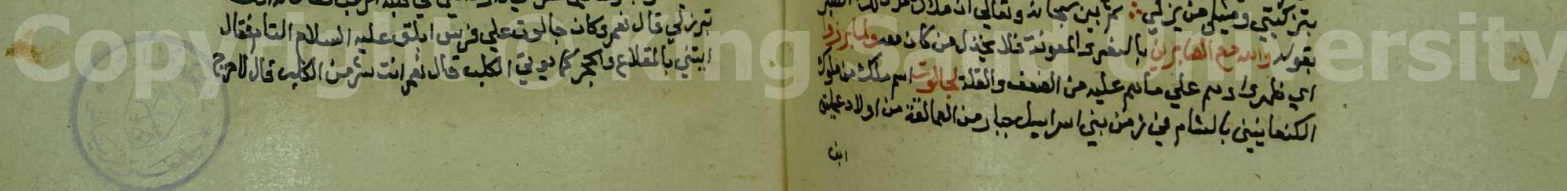 بتزكيتي ومثلي من يزكي ثم بين سبحانه وتعالى ان ملاك ذلك الصبر
بقوله والله مع الصابرين بالنصر والمعونة فلا يخذل من كان معه ولما برزوا
اي ظهروا وهم علي ماهم عليه من الضعف والقلة لجالوت اسم ملك من ملوك
الكنعانيين بالشام في زمن بني اسرائيل جبار من العمالقة من اولاد عمليق
ابن
تبرز لي قال نعم وكان جالوت علي فرس ابلق عليه السلاح التام فقال
اتيتني بالمقلاع والحجر كما يوتي الكلب قال نعم انت شر من الكلب قال لا جرم
Copyright © King Saud University